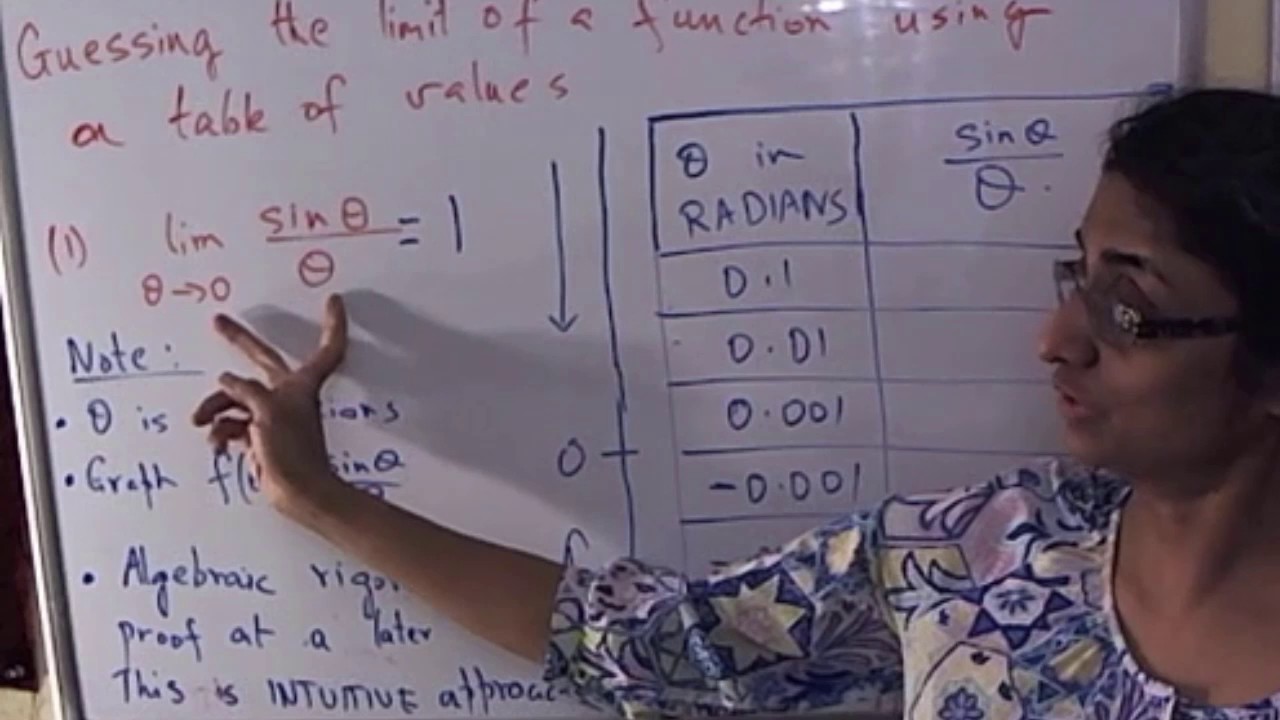 Guessing the limit of a function using
a table of values
(1) lim sinθ/θ = 1
θ→0
Note:
• θ is
• Graph f( sinθ
• Algebraic
proof at a later
This is INTUITIVE
θ in
RADIANS
sinθ/θ
0.1
0.01
0.001
0
-0.001